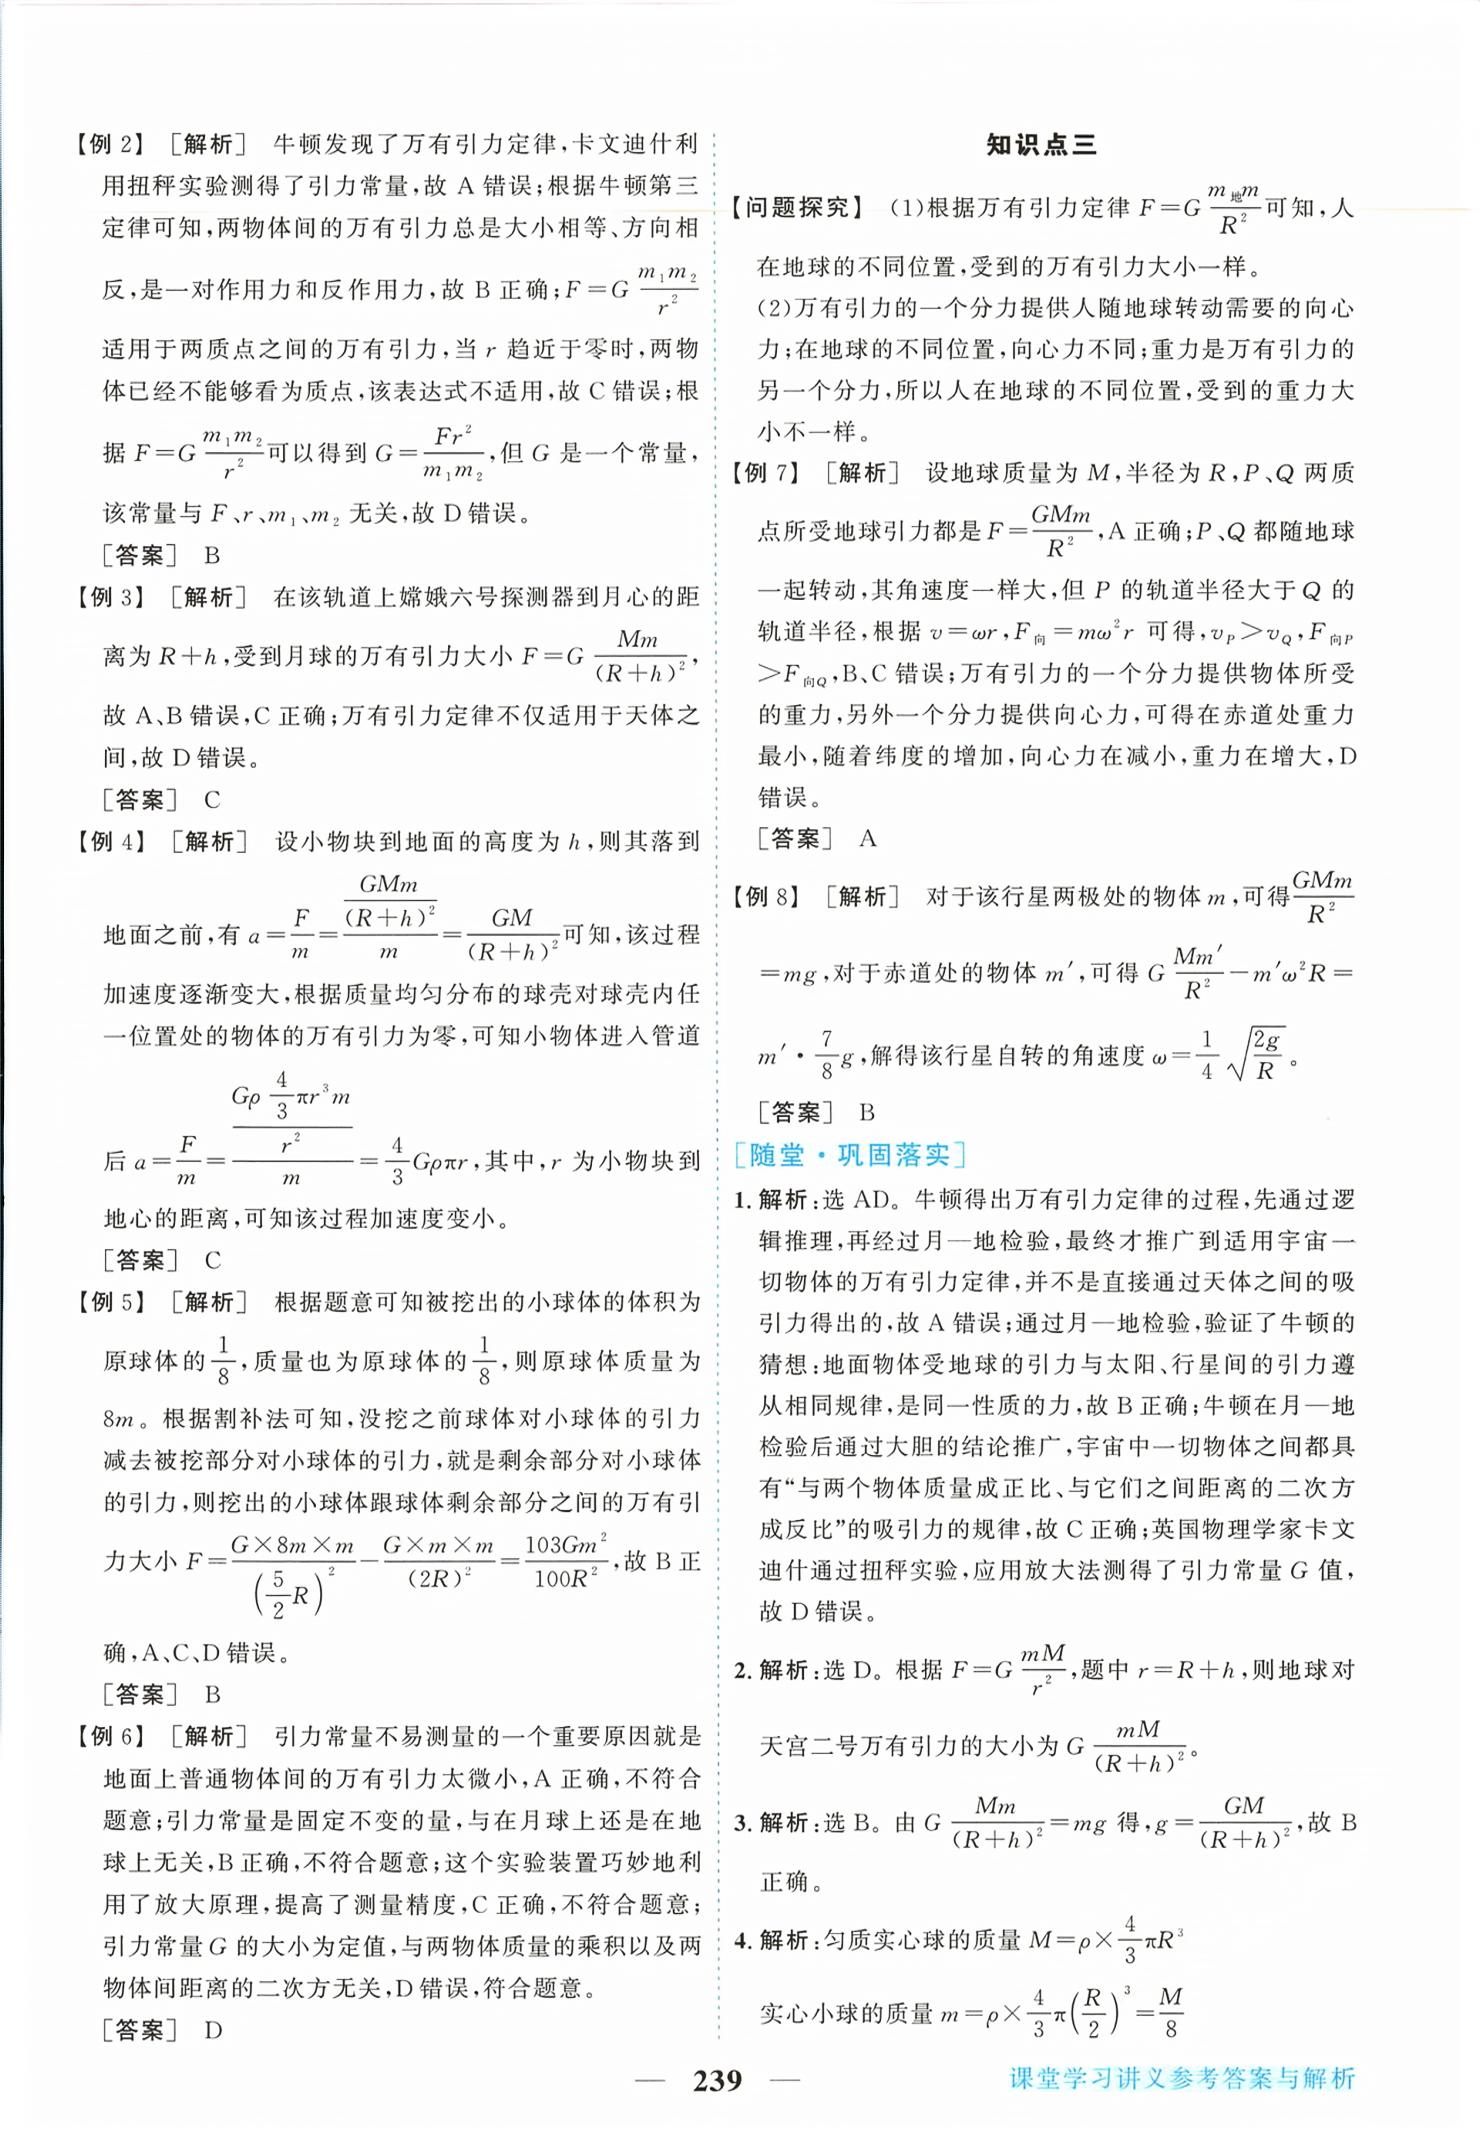 【例2】 [解析] 牛顿发现了万有引力定律,卡文迪什利
用扭秤实验测得了引力常量,故 A 错误;根据牛顿第三
定律可知,两物体间的万有引力总是大小相等、方向相
反,是一对作用力和反作用力,故 B 正确;F=G\frac{m_1m_2}{r^2}
适用于两质点之间的万有引力,当 r 趋近于零时,两物
体已经不能够看为质点,该表达式不适用,故 C 错误;根
据 F=G\frac{m_1m_2}{r^2}可以得到 G=\frac{Fr^2}{m_1m_2},但 G 是一个常量,
该常量与 F、r、m_1、m_2 无关,故 D 错误。
[答案] B
【例3】 [解析] 在该轨道上嫦娥六号探测器到月心的距
离为 R+h,受到月球的万有引力大小 F=G\frac{Mm}{(R+h)^2},
故 A、B 错误,C 正确;万有引力定律不仅适用于天体之
间,故 D 错误。
[答案] C
【例4】 [解析] 设小物块到地面的高度为 h,则其落到
地面之前,有 a=\frac{F}{m}=\frac{\frac{GMm}{(R+h)^2}}{m}=\frac{GM}{(R+h)^2}可知,该过程
加速度逐渐变大,根据质量均匀分布的球壳对球壳内任
一位置处的物体的万有引力为零,可知小物体进入管道
后 a=\frac{F}{m}=\frac{\frac{Gρ\frac{4}{3}πr^3m}{r^2}}{m}=\frac{4}{3}Gρπr,其中,r 为小物块到
地心的距离,可知该过程加速度变小。
[答案] C
【例5】 [解析] 根据题意可知被挖出的小球体的体积为
原球体的\frac{1}{8},质量也为原球体的\frac{1}{8},则原球体质量为
8m。根据割补法可知,没挖之前球体对小球体的引力
减去被挖部分对小球体的引力,就是剩余部分对小球体
的引力,则挖出的小球体跟球体剩余部分之间的万有引
力大小 F=\frac{G×8m×m}{(\frac{5}{2}R)^2}-\frac{G×m×m}{(2R)^2}=\frac{103Gm^2}{100R^2},故 B 正
确,A、C、D 错误。
[答案] B
【例6】 [解析] 引力常量不易测量的一个重要原因就是
地面上普通物体间的万有引力太微小,A 正确,不符合
题意;引力常量是固定不变的量,与在月球上还是在地
球上无关,B 正确,不符合题意;这个实验装置巧妙地利
用了放大原理,提高了测量精度,C 正确,不符合题意;
引力常量 G 的大小为定值,与两物体质量的乘积以及两
物体间距离的二次方无关,D 错误,符合题意。
[答案] D
知识点三
【问题探究】 (1)根据万有引力定律 F=G\frac{m_地m}{R^2}可知,人
在地球的不同位置,受到的万有引力大小一样。
(2)万有引力的一个分力提供人随地球转动需要的向心
力;在地球的不同位置,向心力不同;重力是万有引力的
另一个分力,所以人在地球的不同位置,受到的重力大
小不一样。
【例7】 [解析] 设地球质量为 M,半径为 R,P、Q 两质
点所受地球引力都是 F=\frac{GMm}{R^2},A 正确;P、Q 都随地球
一起转动,其角速度一样大,但 P 的轨道半径大于 Q 的
轨道半径,根据 v=ωr,F_向=mω^2r 可得,v_P>v_Q,F_{向P}
>F_{向Q},B、C 错误;万有引力的一个分力提供物体所受
的重力,另外一个分力提供向心力,可得在赤道处重力
最小,随着纬度的增加,向心力在减小,重力在增大,D
错误。
[答案] A
【例8】 [解析] 对于该行星两极处的物体 m,可得\frac{GMm}{R^2}
=mg,对于赤道处的物体 m′,可得 G\frac{Mm′}{R^2}-m′ω^2R=
m′·\frac{7}{8}g,解得该行星自转的角速度 ω=\frac{1}{4}\sqrt{\frac{2g}{R}}。
[答案] B
[随堂·巩固落实]
1.解析:选 AD。牛顿得出万有引力定律的过程,先通过逻
辑推理,再经过月—地检验,最终才推广到适用宇宙一
切物体的万有引力定律,并不是直接通过天体之间的吸
引力得出的,故 A 错误;通过月—地检验,验证了牛顿的
猜想:地面物体受地球的引力与太阳、行星间的引力遵
从相同规律,是同一性质的力,故 B 正确;牛顿在月—地
检验后通过大胆的结论推广,宇宙中一切物体之间都具
有“与两个物体质量成正比、与它们之间距离的二次方
成反比”的吸引力的规律,故 C 正确;英国物理学家卡文
迪什通过扭秤实验,应用放大法测得了引力常量 G 值,
故 D 错误。
2.解析:选 D。根据 F=G\frac{mM}{r^2},题中 r=R+h,则地球对
天宫二号万有引力的大小为 G\frac{mM}{(R+h)^2}。
3.解析:选 B。由 G\frac{Mm}{(R+h)^2}=mg 得,g=\frac{GM}{(R+h)^2},故 B
正确。
4.解析:匀质实心球的质量 M=ρ×\frac{4}{3}πR^3
实心小球的质量 m=ρ×\frac{4}{3}π(\frac{R}{2})^3=\frac{M}{8}
— 239 —
课堂学习讲义参考答案与解析